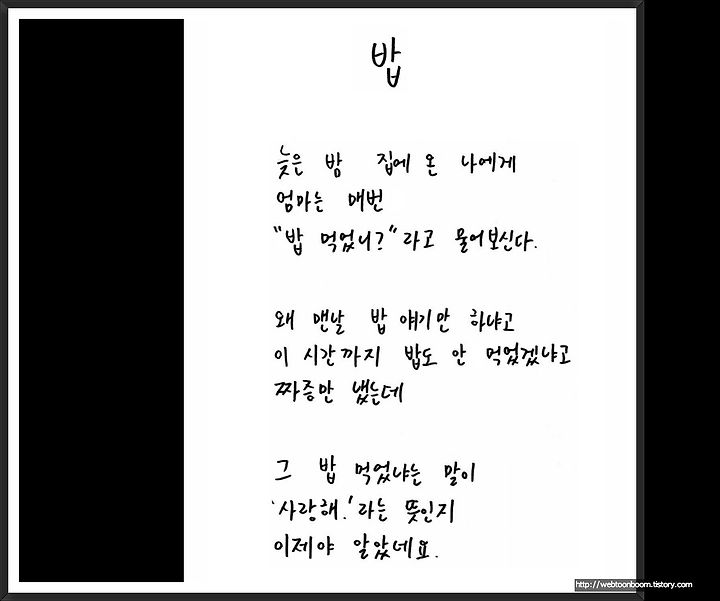 밥
늦은 밤 집에 온 나에게
엄마는 매번
"밥 먹었니?"라고 물어보신다.
왜 맨날 밥 얘기만 하냐고
이 시간까지 밥도 안 먹었겠냐고
짜증만 냈는데
그 밥 먹었냐는 말이
'사랑해.'라는 뜻인지
이제야 알았네요.
http://webtoonboom.tistory.com